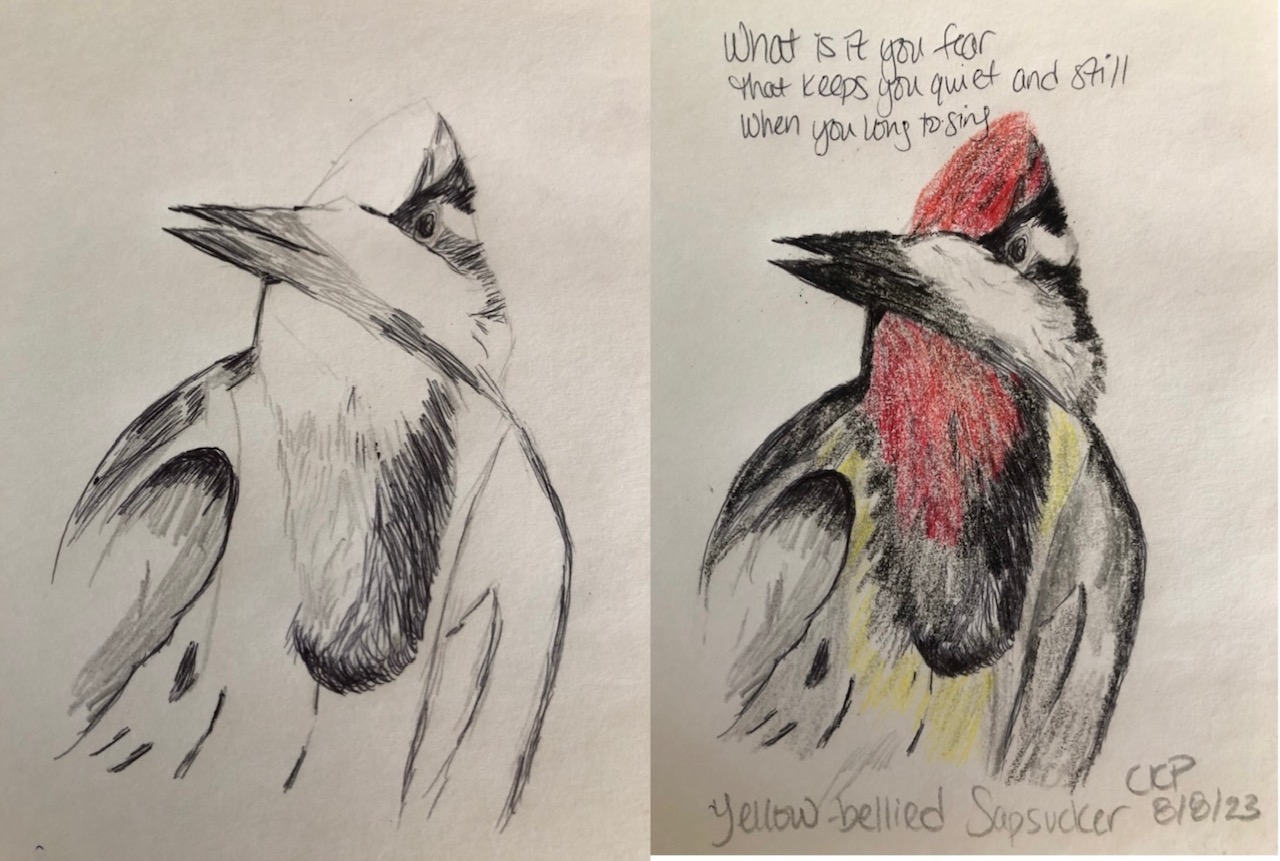 What is it you fear
that keeps you quiet and still
when you long to sing
CKP
Yellow-bellied Sapsucker 8/8/23